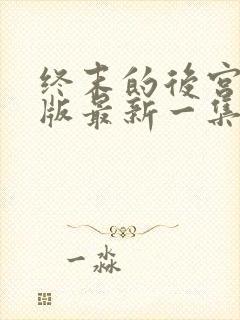 终末的後宫
版最新一集
一淼